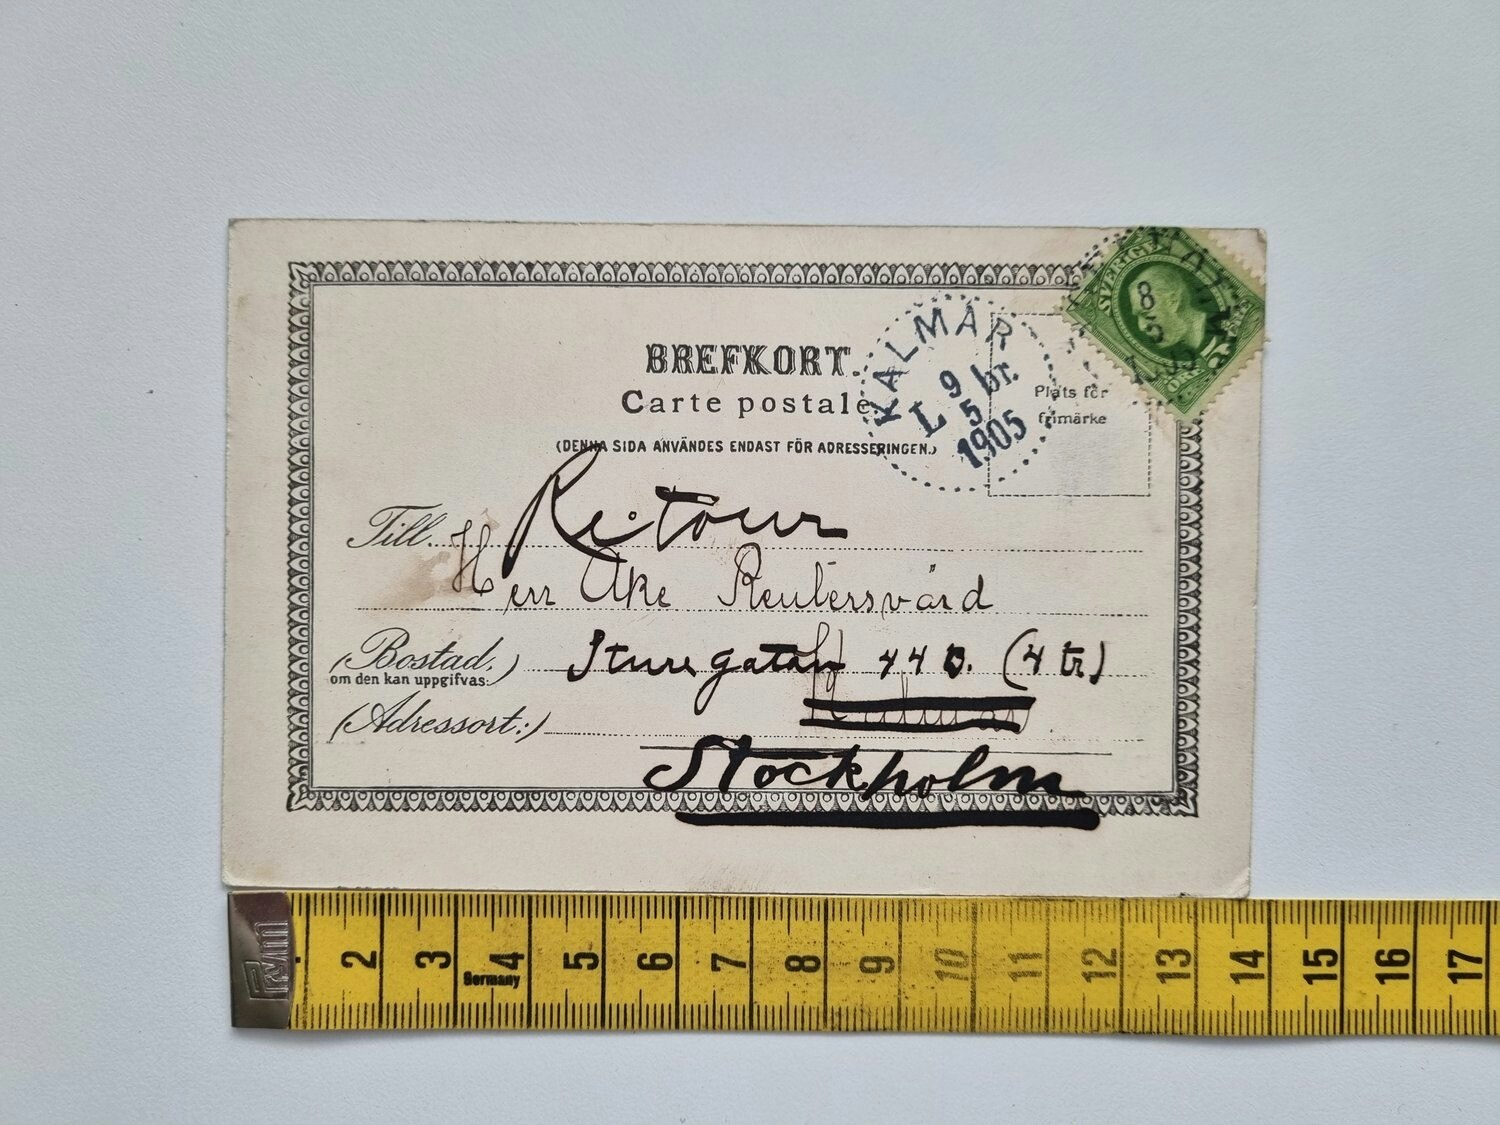 BREFKORT.
Carte postale.
(DENNA SIDA ANVÄNDES ENDAST FÖR ADRESSERINGEN.)
KALMAR
L 9 br.
5
1905
SVERIGE
8
5
Plats för
frimärke
Retour
Till
Herr Åke Reutersvärd
(Bostad,)
om den kan uppgifvas:
Sturegatan 44 B. (4 tr)
(Adressort:)
Stockholm
2 3 4 5 6 7 8 9 10 11 12 13 14 15 16 17
Germany